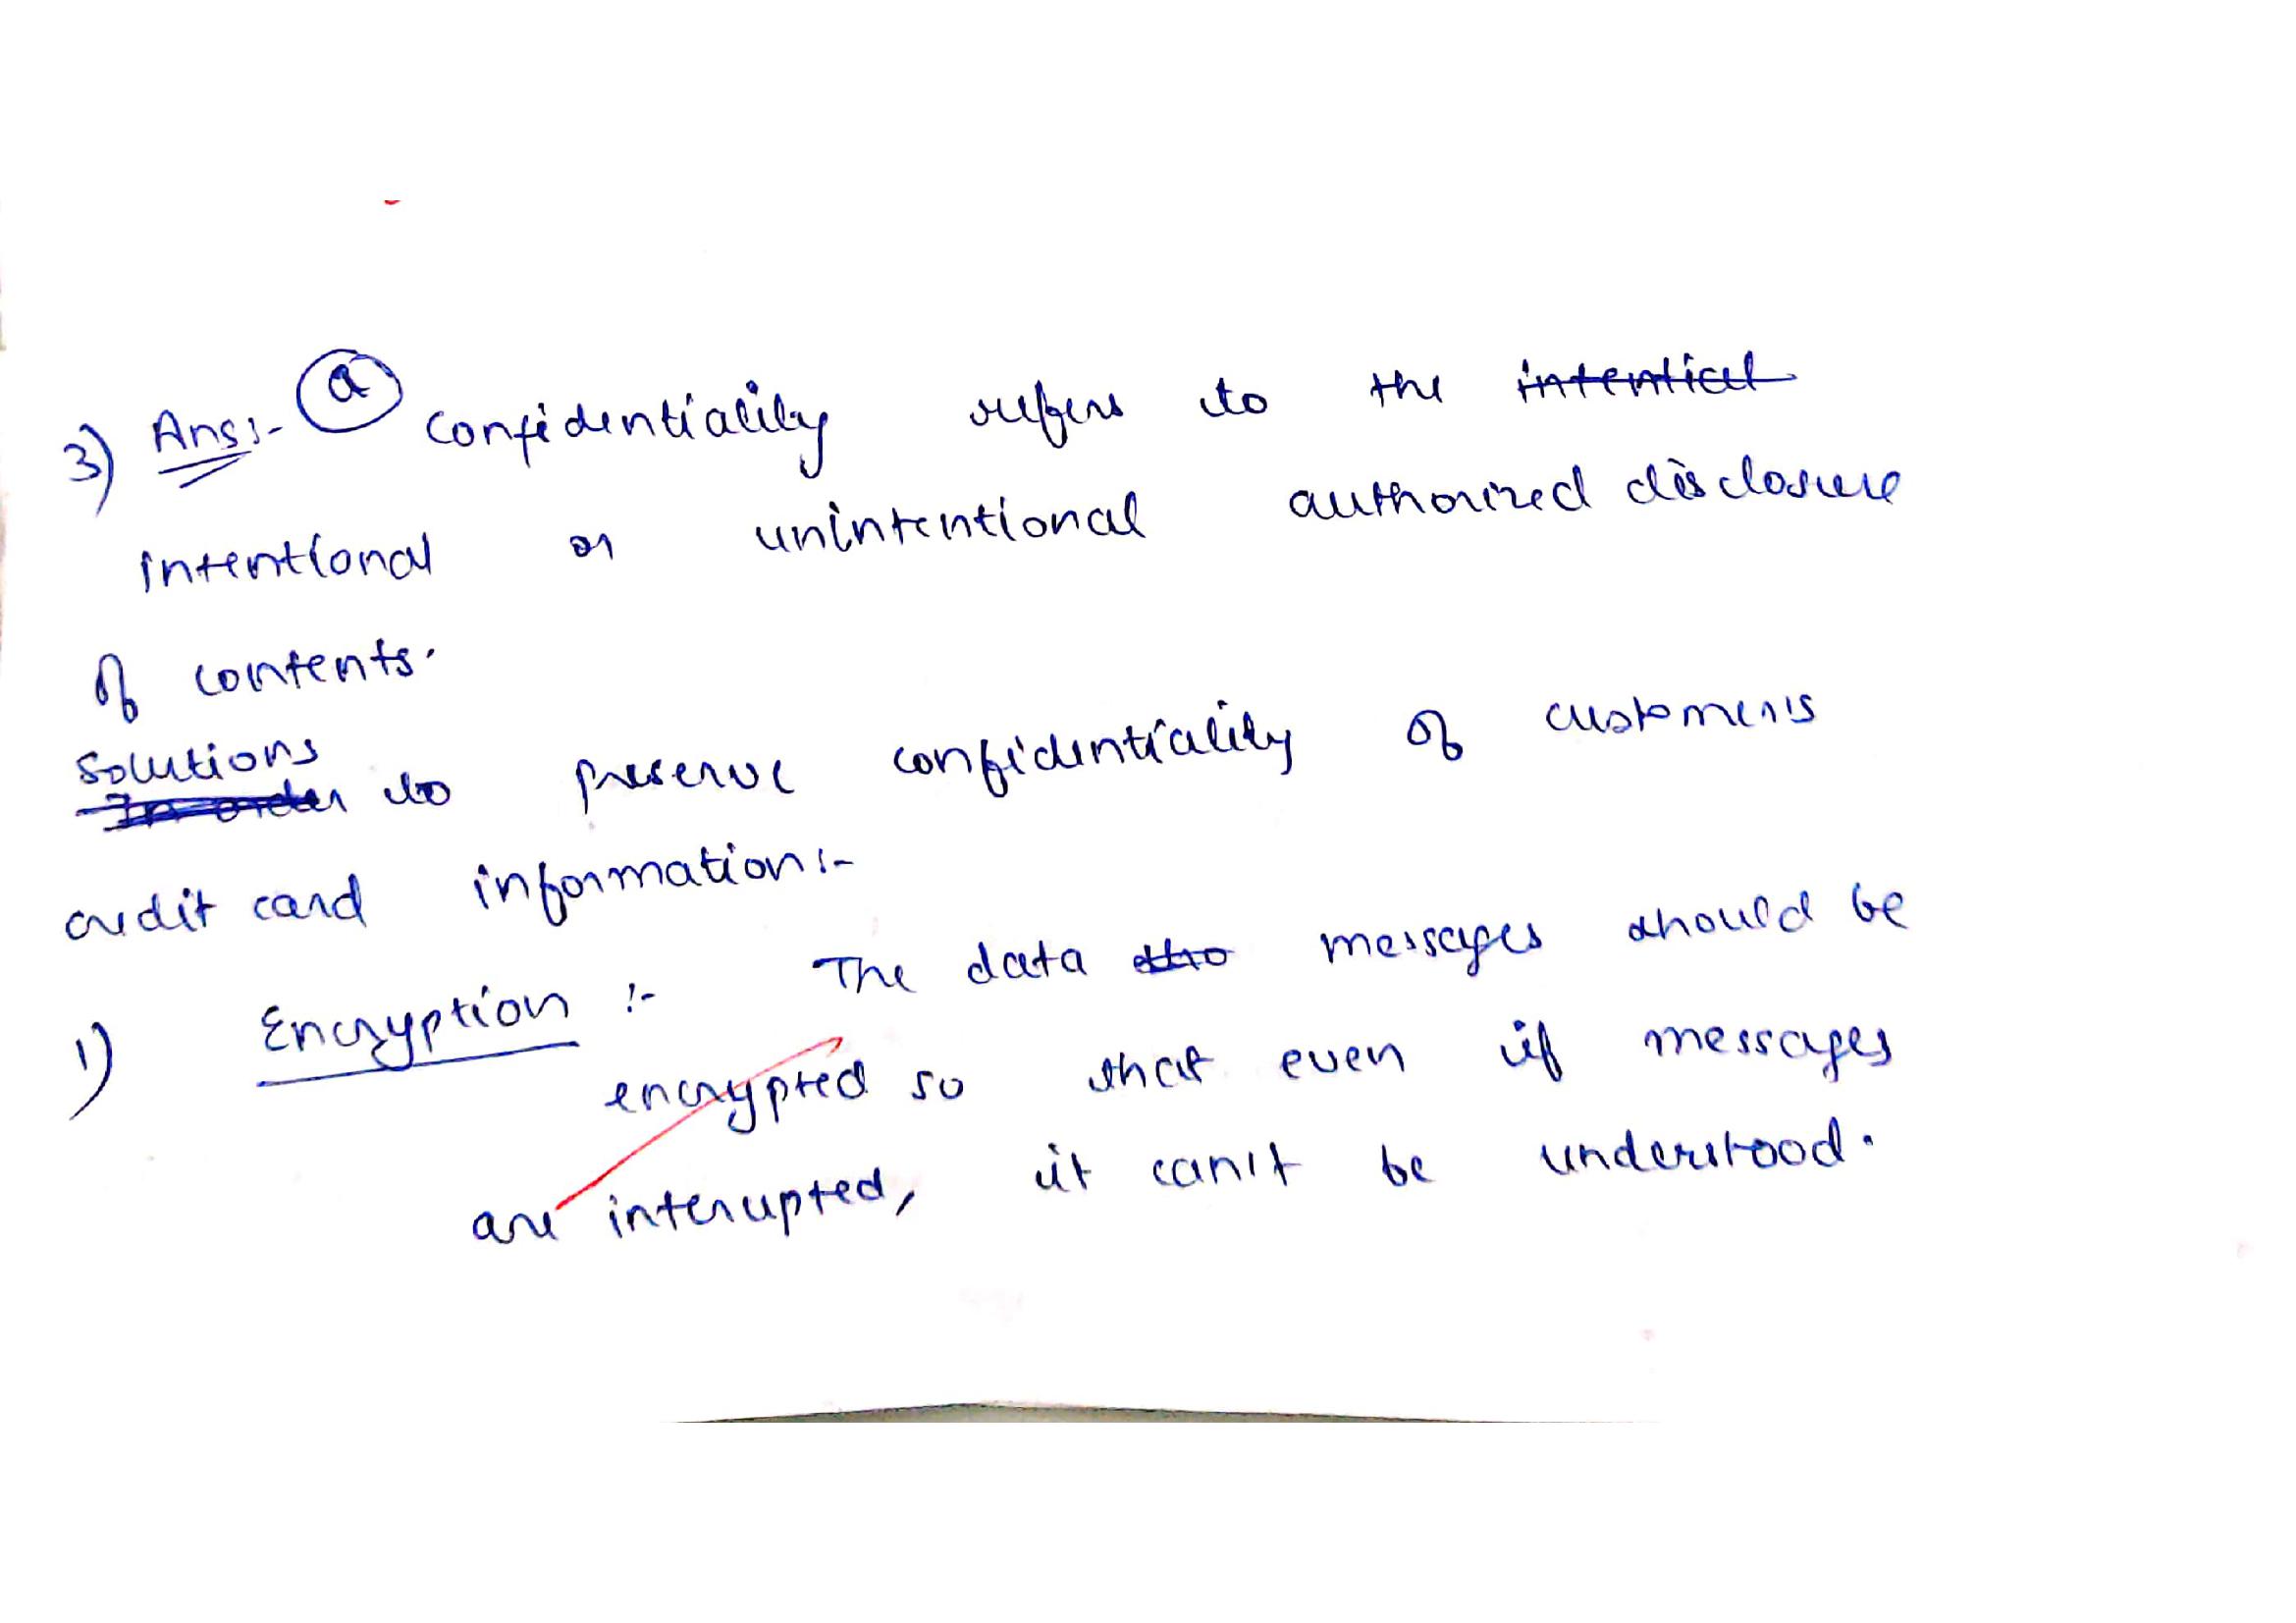 3) Ans:- (a) Confidentiality refers to the intentical
intentional or unintentional authorized disclosure
of contents.
Solutions
In order to preserve confidentiality of customer's
credit card information:-
1) Encryption :- The data messages should be
encrypted so that even if messages
are interupted, it can't be understood.